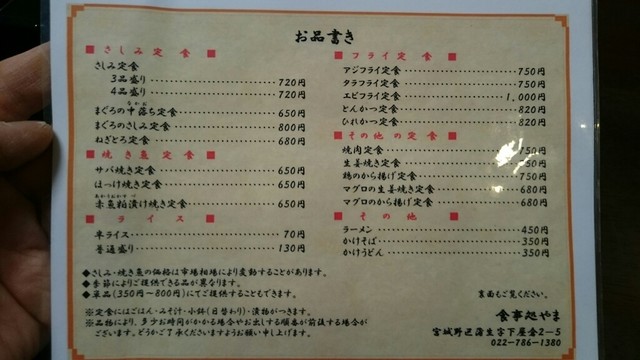 お品書き
■ さしみ定食 ■
さしみ定食
3品盛り 720円
4品盛り 720円
まぐろの中落ち定食 650円
まぐろのさしみ定食 800円
ねぎとろ定食 680円
■ 焼き魚定食 ■
サバ焼き定食 650円
ほっけ焼き定食 650円
赤魚粕漬け焼き定食 650円
■ ライス ■
半ライス 70円
普通盛り 130円
◆さしみ・焼き魚の価格は市場相場により変動することがあります。
◆季節によりご提供できる品が異なります。
◆単品(350円～800円)にてご提供することもできます。
※定食にはごはん・みそ汁・小鉢(日替わり)・漬物がつきます。
※品物により、多少お時間がかかる場合やお出しする順番が前後する場合が
ございます。どうかご了承くださいますようお願い申し上げます。
■ フライ定食 ■
アジフライ定食 750円
タラフライ定食 750円
エビフライ定食 1,000円
とんかつ定食 820円
ひれかつ定食 820円
■ その他の定食 ■
焼肉定食 750円
生姜焼き定食 750円
鶏のから揚げ定食 750円
マグロの生姜焼き定食 680円
マグロのから揚げ定食 680円
■ その他 ■
ラーメン 450円
かけそば 350円
かけうどん 350円
裏面もご覧ください。
食事処やま
宮城野区蒲生字下屋倉2-5
022-786-1380